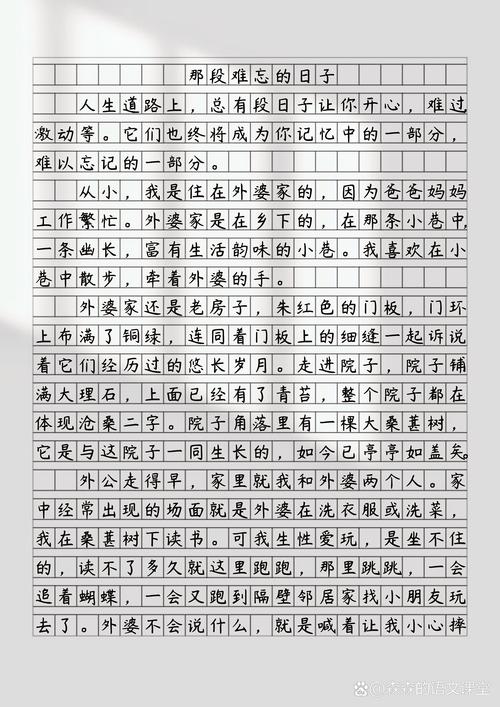 那段难忘的日子
人生道路上，总有段日子让你开心，难过
激动等。它们也终将成为你记忆中的一部分，
难以忘记的一部分。
从小，我是住在外婆家的，因为爸爸妈妈
工作繁忙。外婆家是在乡下的，在那条小巷中，
一条幽长，富有生活韵味的小巷。我喜欢在小
巷中散步，牵着外婆的手。
外婆家还是老房子，朱红色的门板，门环
上布满了铜绿，连同着门板上的细缝一起诉说
着它们经历过的悠长岁月。走进院子，院子铺
满大理石，上面已经有了青苔，整个院子都在
体现沧桑二字。院子角落里有一棵大桑葚树，
它是与这院子一同生长的，如今已亭亭如盖矣。
外公走得早，家里就我和外婆两个人。家
中经常出现的场面就是外婆在洗衣服或洗菜，
我在桑葚树下读书。可我生性爱玩，是坐不住
的，读不了多久就这里跑跑，那里跳跳，一会
追着蝴蝶，一会又跑到隔壁邻居家找小朋友玩
去了。外婆不会说什么，就是喊着让我小心摔
森森的语文课堂